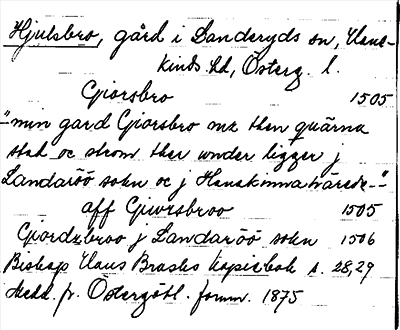 Hjulsbro, gård i Landeryds sn, Hane-
kinds hd, Österg. l.
Giorsbro 1505
"min gard Giorsbro mz then quärna
stad oc strom ther under ligger j
Landaröö sokn oc j Hanakinna härede-"
aff Giorsbroo 1505
Giordzbroo j Landaröö sokn 1506
Biskop Hans Brasks kopiebok s. 28,29
Medd. fr. Östergötl. fornm. 1875